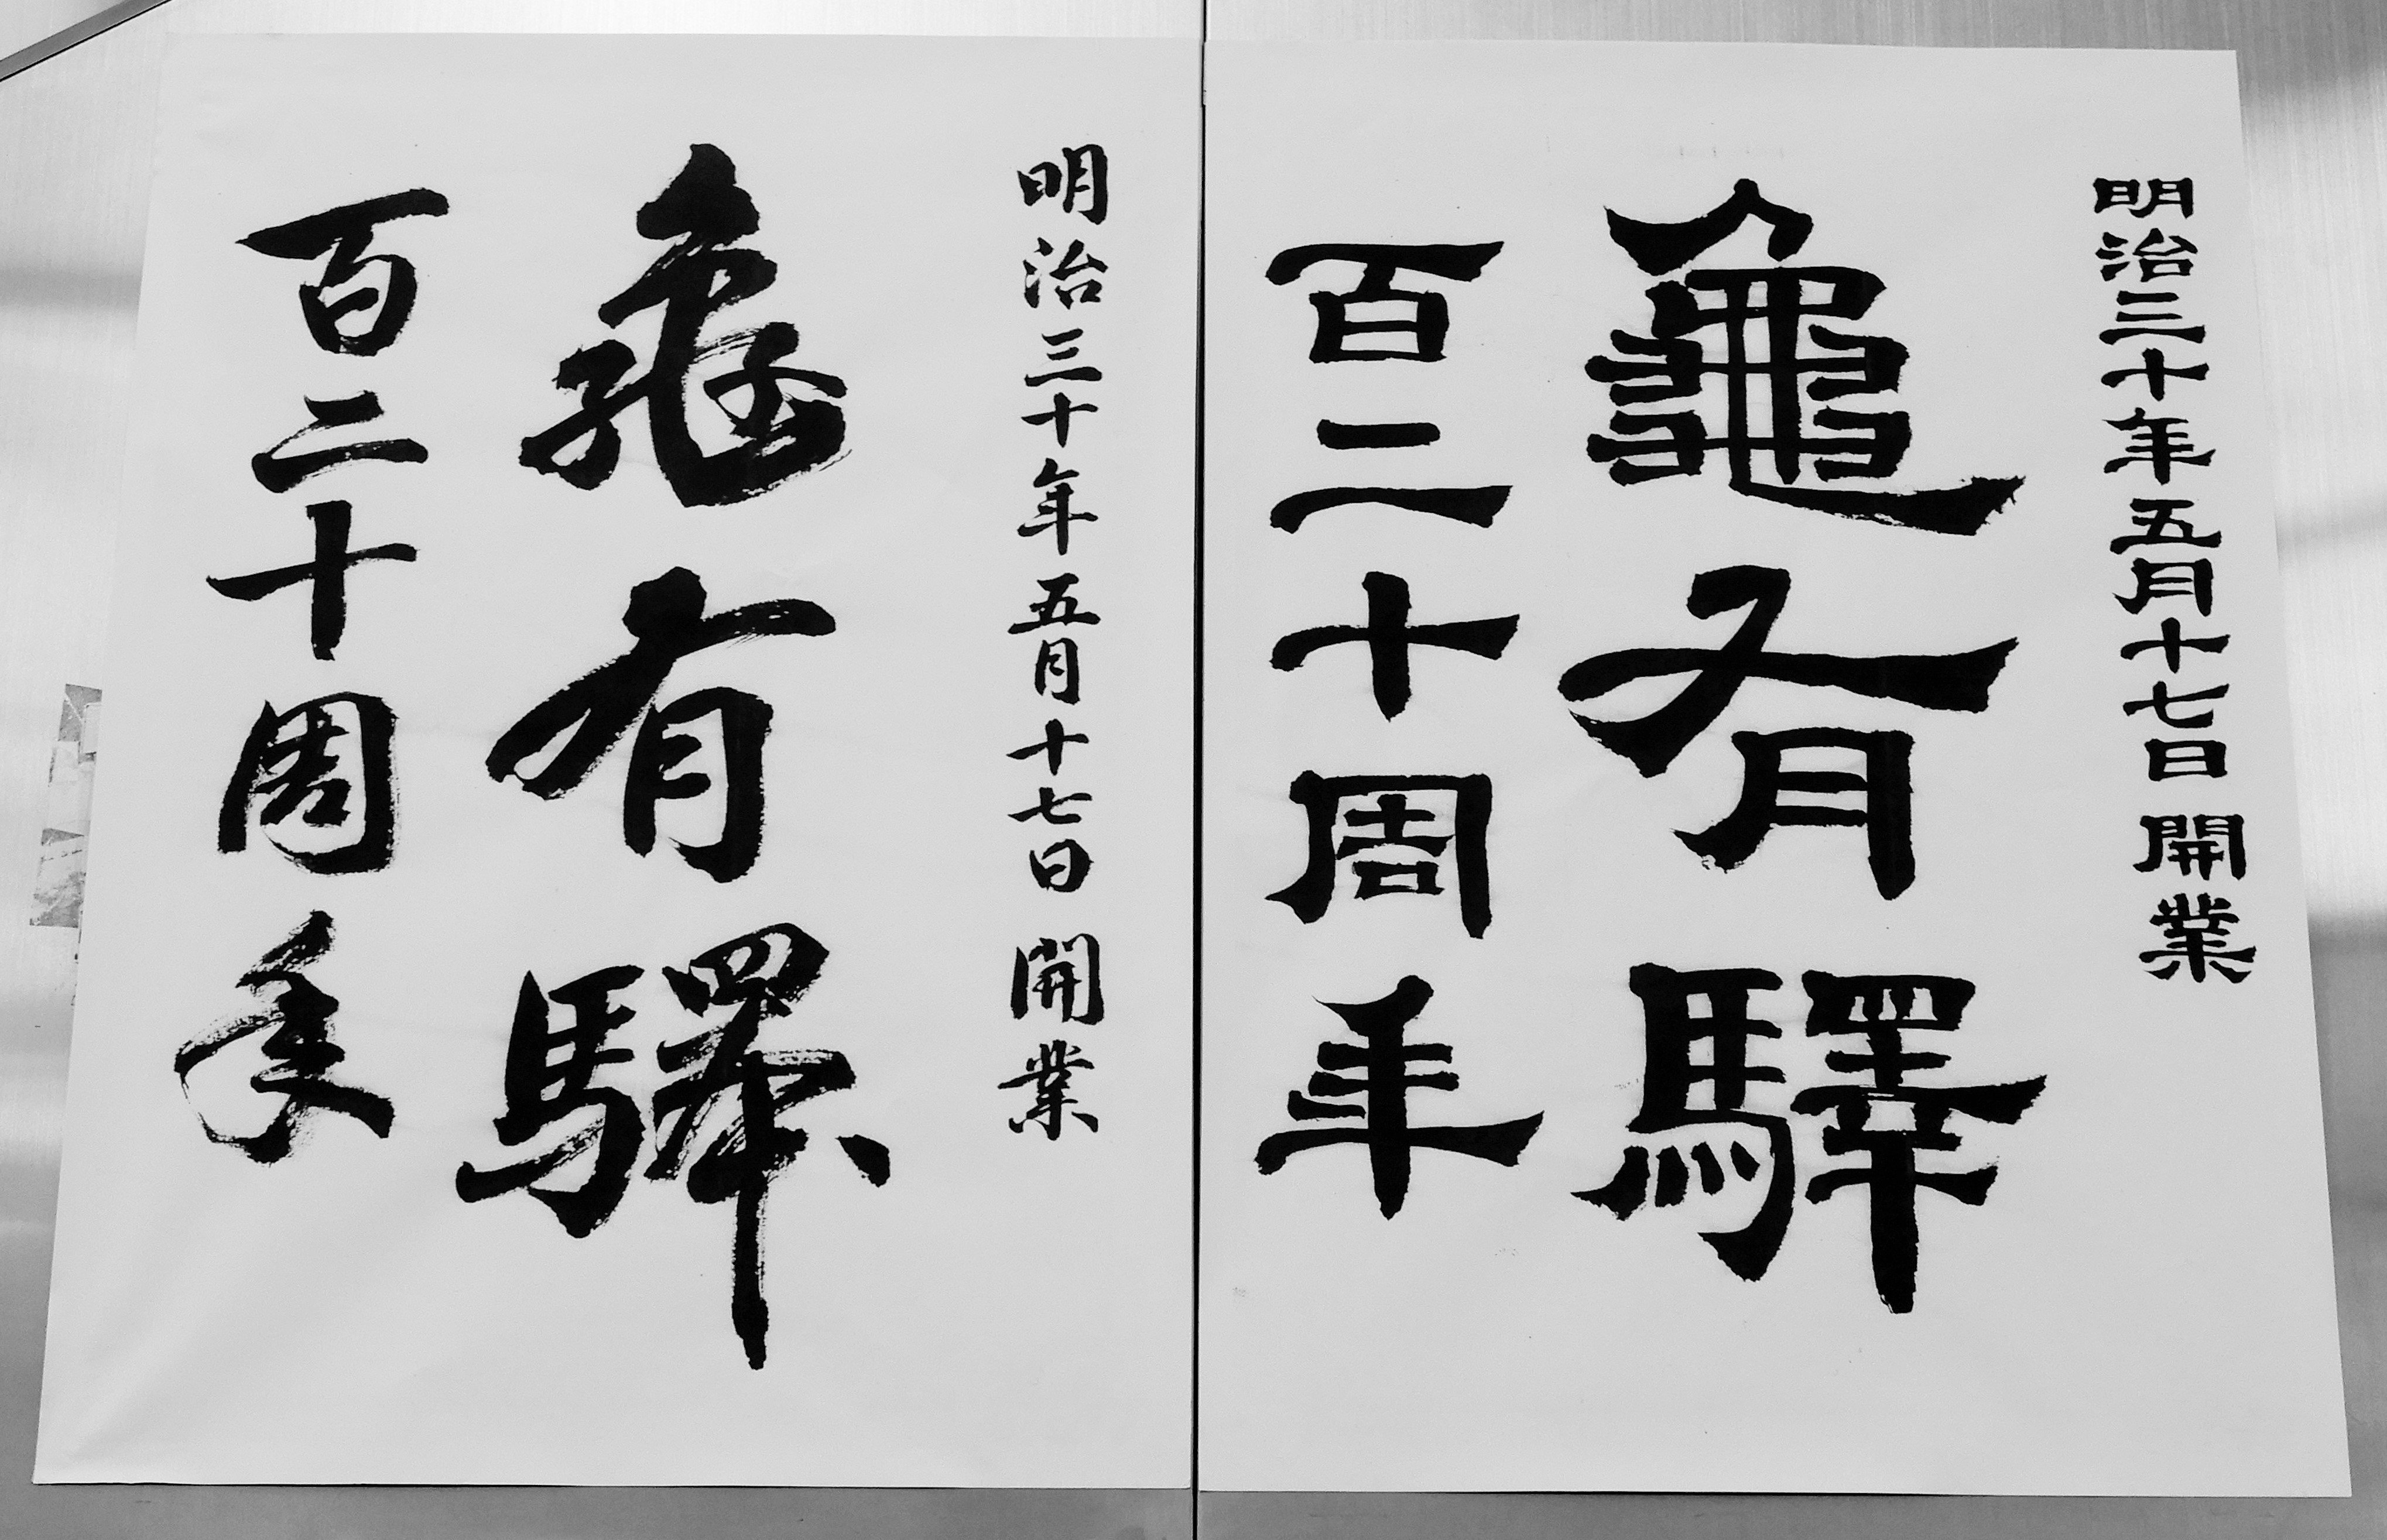 明治三十年五月十七日開業
龜有驛
百二十周年
明治三十年五月十七日開業
龜有驛
百二十周年